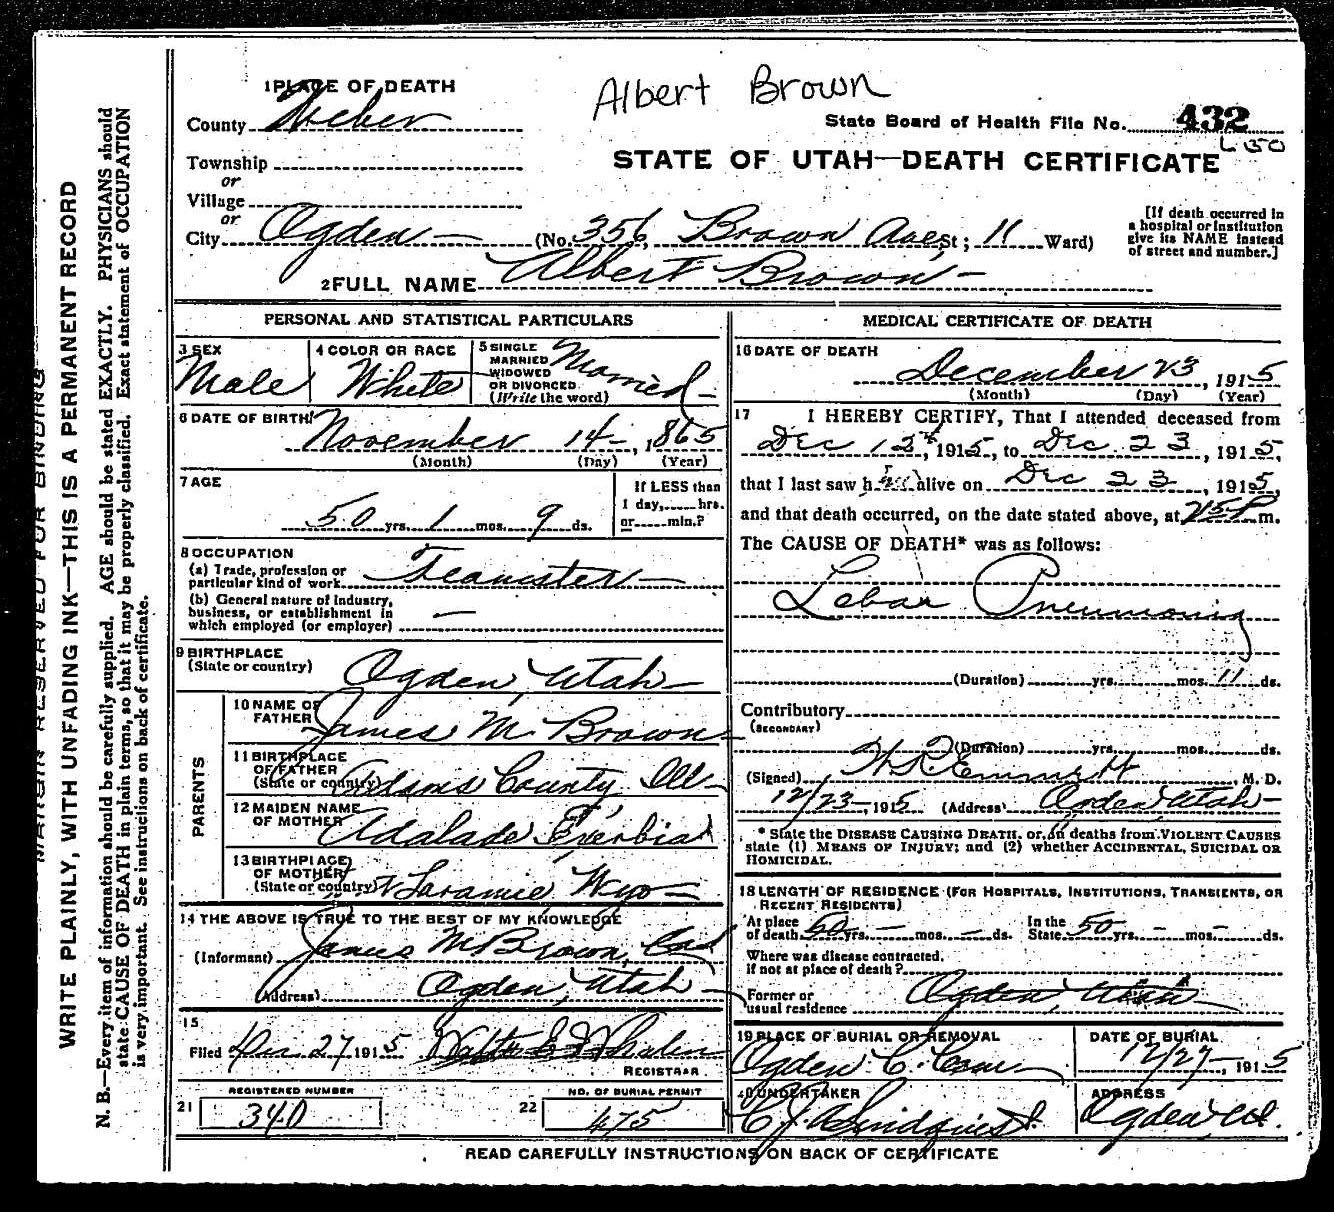 Albert Brown
1 PLACE OF DEATH
County Weber
State Board of Health File No. 432
STATE OF UTAH—DEATH CERTIFICATE
Township
or
Village
or
City Ogden (No. 356, Brown Ave, St; 11 Ward)
[If death occurred in
a hospital or institution
give its NAME instead
of street and number.]
2 FULL NAME Albert Brown
PERSONAL AND STATISTICAL PARTICULARS
3 SEX
Male
4 COLOR OR RACE
White
5 SINGLE
MARRIED
WIDOWED
OR DIVORCED
(Write the word)
Married
6 DATE OF BIRTH
November 14, 1865
(Month) (Day) (Year)
7 AGE
50 yrs. 1 mos. 9 ds.
If LESS than
1 day, hrs.
or min.?
8 OCCUPATION
(a) Trade, profession or
particular kind of work Teamster
(b) General nature of Industry,
business, or establishment in
which employed (or employer) —
9 BIRTHPLACE
(State or country) Ogden, Utah
PARENTS
10 NAME OF
FATHER James M. Brown
11 BIRTHPLACE
OF FATHER
(State or country) Adams County Ill
12 MAIDEN NAME
OF MOTHER Adalade
13 BIRTHPLACE
OF MOTHER
(State or country) Ft Laramie Wyo
14 THE ABOVE IS TRUE TO THE BEST OF MY KNOWLEDGE
(Informant) James M Brown,
(Address) Ogden, Utah
15
Filed Dec 27 1915
REGISTRAR
REGISTERED NUMBER
21 340
NO. OF BURIAL PERMIT
22 475
MEDICAL CERTIFICATE OF DEATH
16 DATE OF DEATH
December 23, 1915
(Month) (Day) (Year)
17 I HEREBY CERTIFY, That I attended deceased from
Dec 12th, 1915, to Dec 23, 1915,
that I last saw him alive on Dec 23, 1915,
and that death occurred, on the date stated above, at m.
The CAUSE OF DEATH* was as follows:
Lobar Pneumonia
(Duration) yrs. mos. 11 ds.
Contributory
(SECONDARY)
(Duration) yrs. mos. ds.
(Signed) Emmett M. D.
12/23 1915 (Address) Ogden, Utah
* State the DISEASE CAUSING DEATH, or, in deaths from VIOLENT CAUSES
state (1) MEANS OF INJURY; and (2) whether ACCIDENTAL, SUICIDAL OR
HOMICIDAL.
18 LENGTH OF RESIDENCE (FOR HOSPITALS, INSTITUTIONS, TRANSIENTS, OR
RECENT RESIDENTS)
At place
of death 50 yrs. — mos. — ds.
In the
State 50 yrs. - mos. - ds.
Where was disease contracted,
if not at place of death?
Former or
usual residence Ogden, Utah
19 PLACE OF BURIAL OR REMOVAL
Ogden C. Cem
DATE OF BURIAL
12/27, 1915
20 UNDERTAKER
C. J. A. Lindquist
ADDRESS
Ogden Ut.
READ CAREFULLY INSTRUCTIONS ON BACK OF CERTIFICATE
MARGIN RESERVED FOR BINDING
WRITE PLAINLY, WITH UNFADING INK—THIS IS A PERMANENT RECORD
N. B.—Every item of information should be carefully supplied. AGE should be stated EXACTLY. PHYSICIANS should
state CAUSE OF DEATH in plain terms, so that it may be properly classified. Exact statement of OCCUPATION
is very important. See instructions on back of certificate.